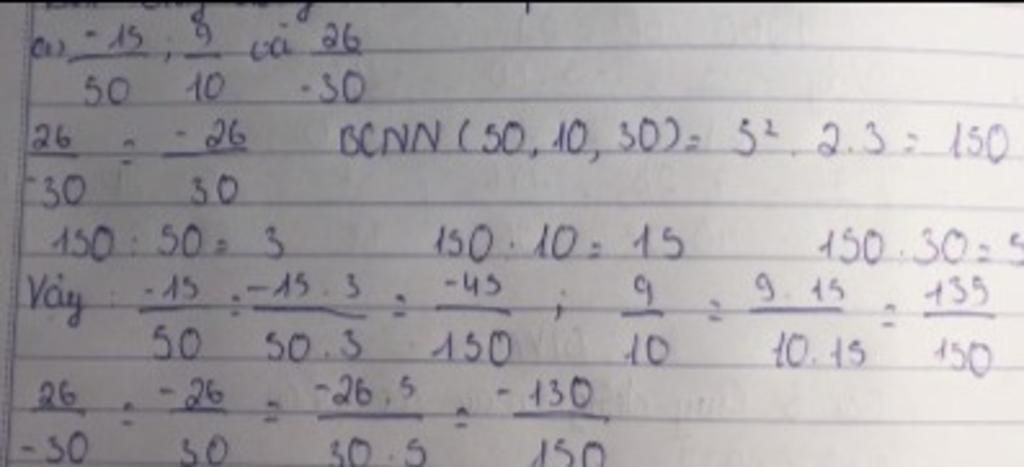 a) -15/50 ; 9/10 và 26/-30
26/-30 = -26/30 BCNN (50, 10, 30) = 5². 2.3 = 150
150 : 50 = 3 150 : 10 = 15 150 : 30 = 5
Vậy : -15/50 = -15.3/50.3 = -45/150 ; 9/10 = 9.15/10.15 = 135/150
26/-30 = -26/30 = -26.5/30.5 = -130/150